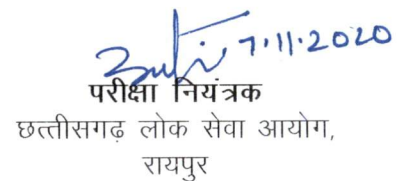 7.11.2020
परीक्षा नियंत्रक
छत्तीसगढ़ लोक सेवा आयोग,
रायपुर